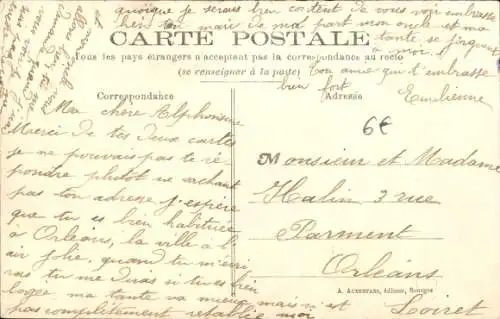 quoique je serais bien content de vous voir embrasse
bien ton mari de ma part mon oncle et ma
tante, se joignent
à moi.
CARTE POSTALE
Tous les pays étrangers n'acceptent pas la correspondance au recto
(se renseigner à la poste)
Ton amie qui t'embrasse
bien fort
Emilienne
Correspondance
Adresse
Ma chère Alphonsine
Merci de tes deux cartes
je ne pouvais pas te ré-
pondre plutôt ne sachant
pas ton adresse j'espère
que tu es bien habituée
à Orléans, la ville a l'
air jolie, quand tu m'écri
ras tu me diras si tu es bien
logée ma tante va mieux mais n'est
pas complètement rétablie moi
6€
Monsieur et Madame
Halin 3 rue
Parment
Orléans
Loiret